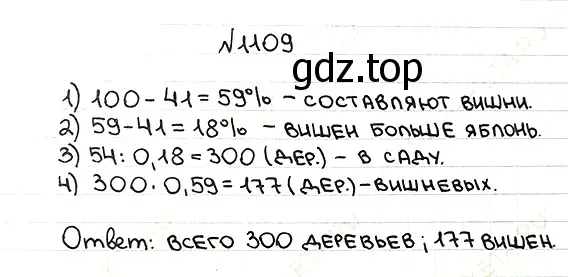 №1109
gdz.top
1) 100 - 41 = 59% - составляют вишни.
2) 59 - 41 = 18% - вишен больше яблонь.
3) 54 : 0,18 = 300 (дер.) - в саду.
4) 300 · 0,59 = 177 (дер.) - вишневых.
Ответ: всего 300 деревьев; 177 вишен.